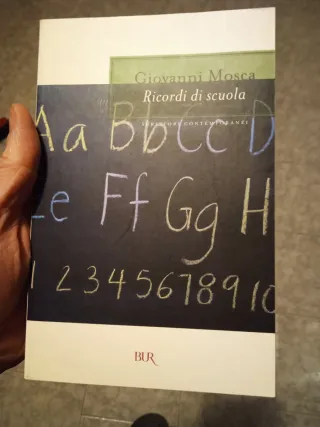 Giovanni Mosca
Ricordi di scuola
SCRITTORI CONTEMPORANEI
Aa Bb Cc D
Ee Ff Gg H
1 2 3 4 5 6 7 8 9 10
BUR